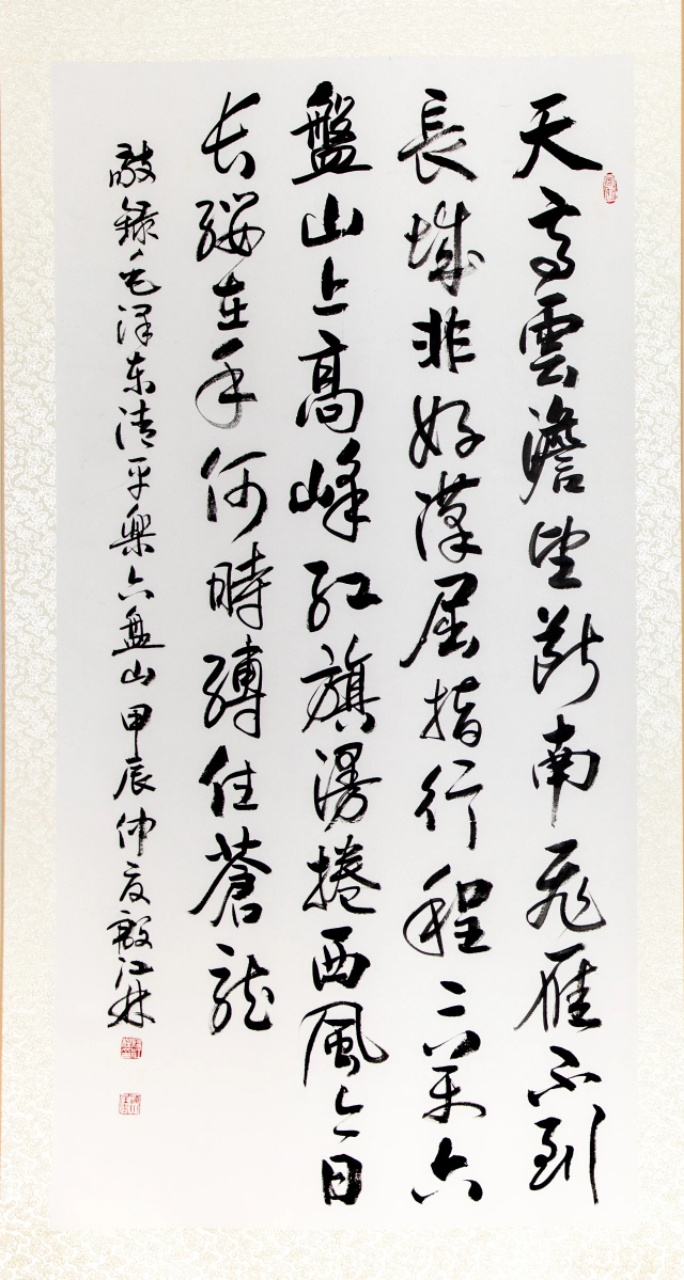 天高雲澹望斷南飛雁不到
長城非好漢屈指行程二萬六
盤山上高峰紅旗漫捲西風今日
长纓在手何時縛住蒼龍
敬錄毛泽东清平樂六盤山甲辰仲夏殷江